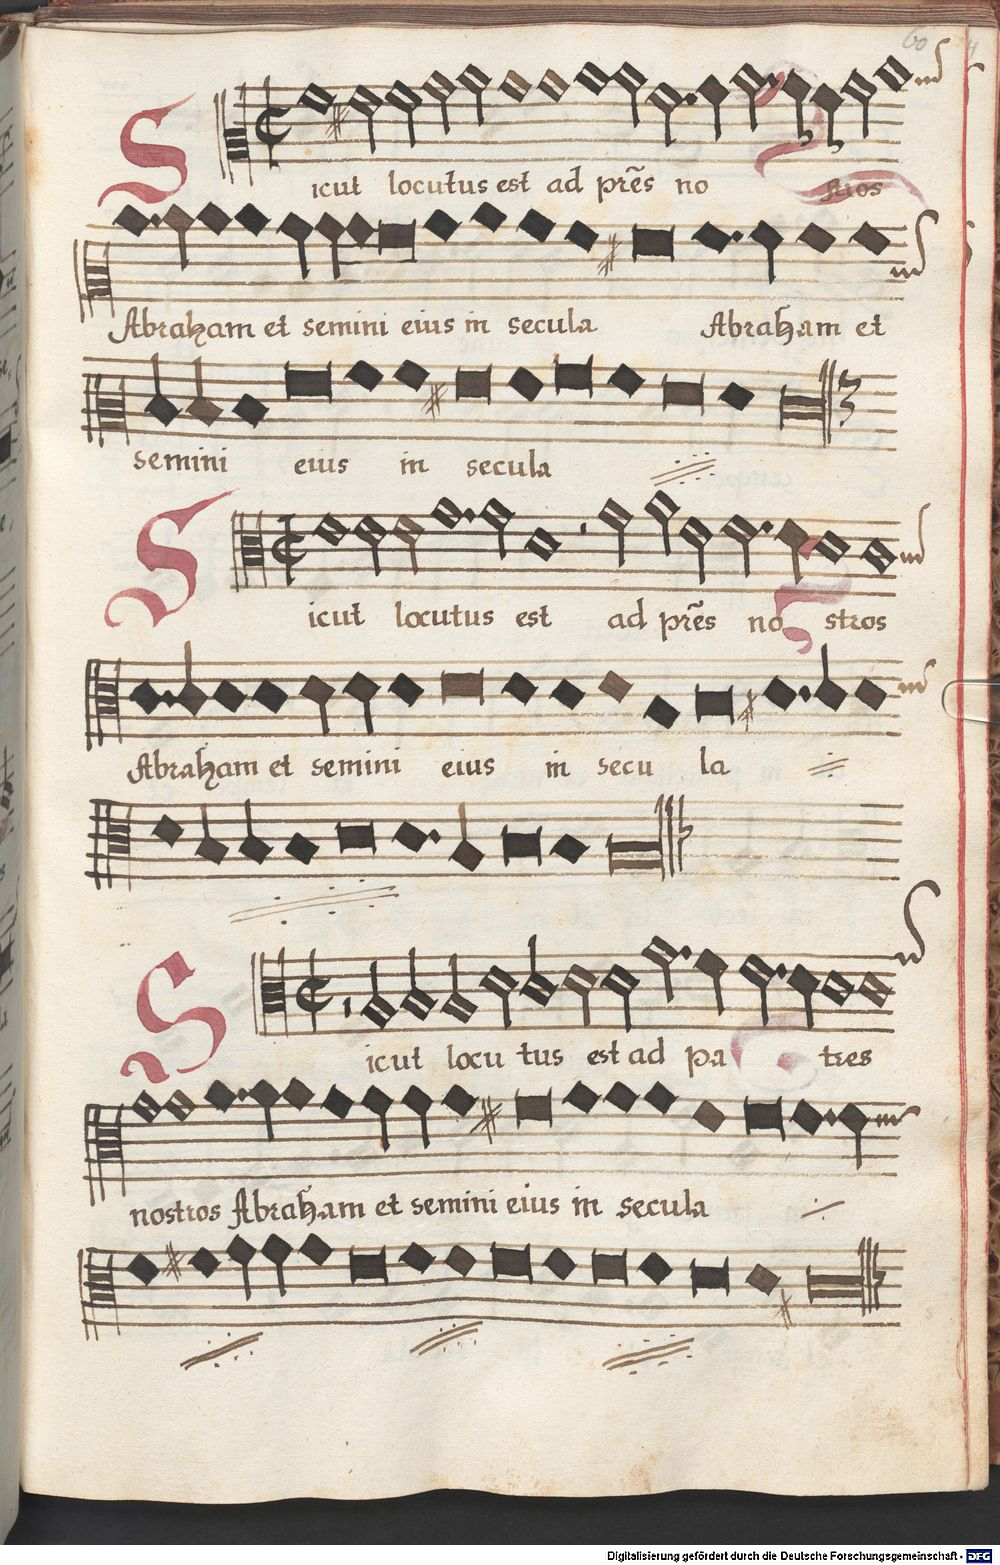 60
Sicut locutus est ad prẽs no stros
Abraham et semini eius in secula Abraham et
semini eius in secula
Sicut locutus est ad prẽs no stros
Abraham et semini eius in secu la
Sicut locu tus est ad pa tres
nostros Abraham et semini eius in secula
Digitalisierung gefördert durch die Deutsche Forschungsgemeinschaft - DFG